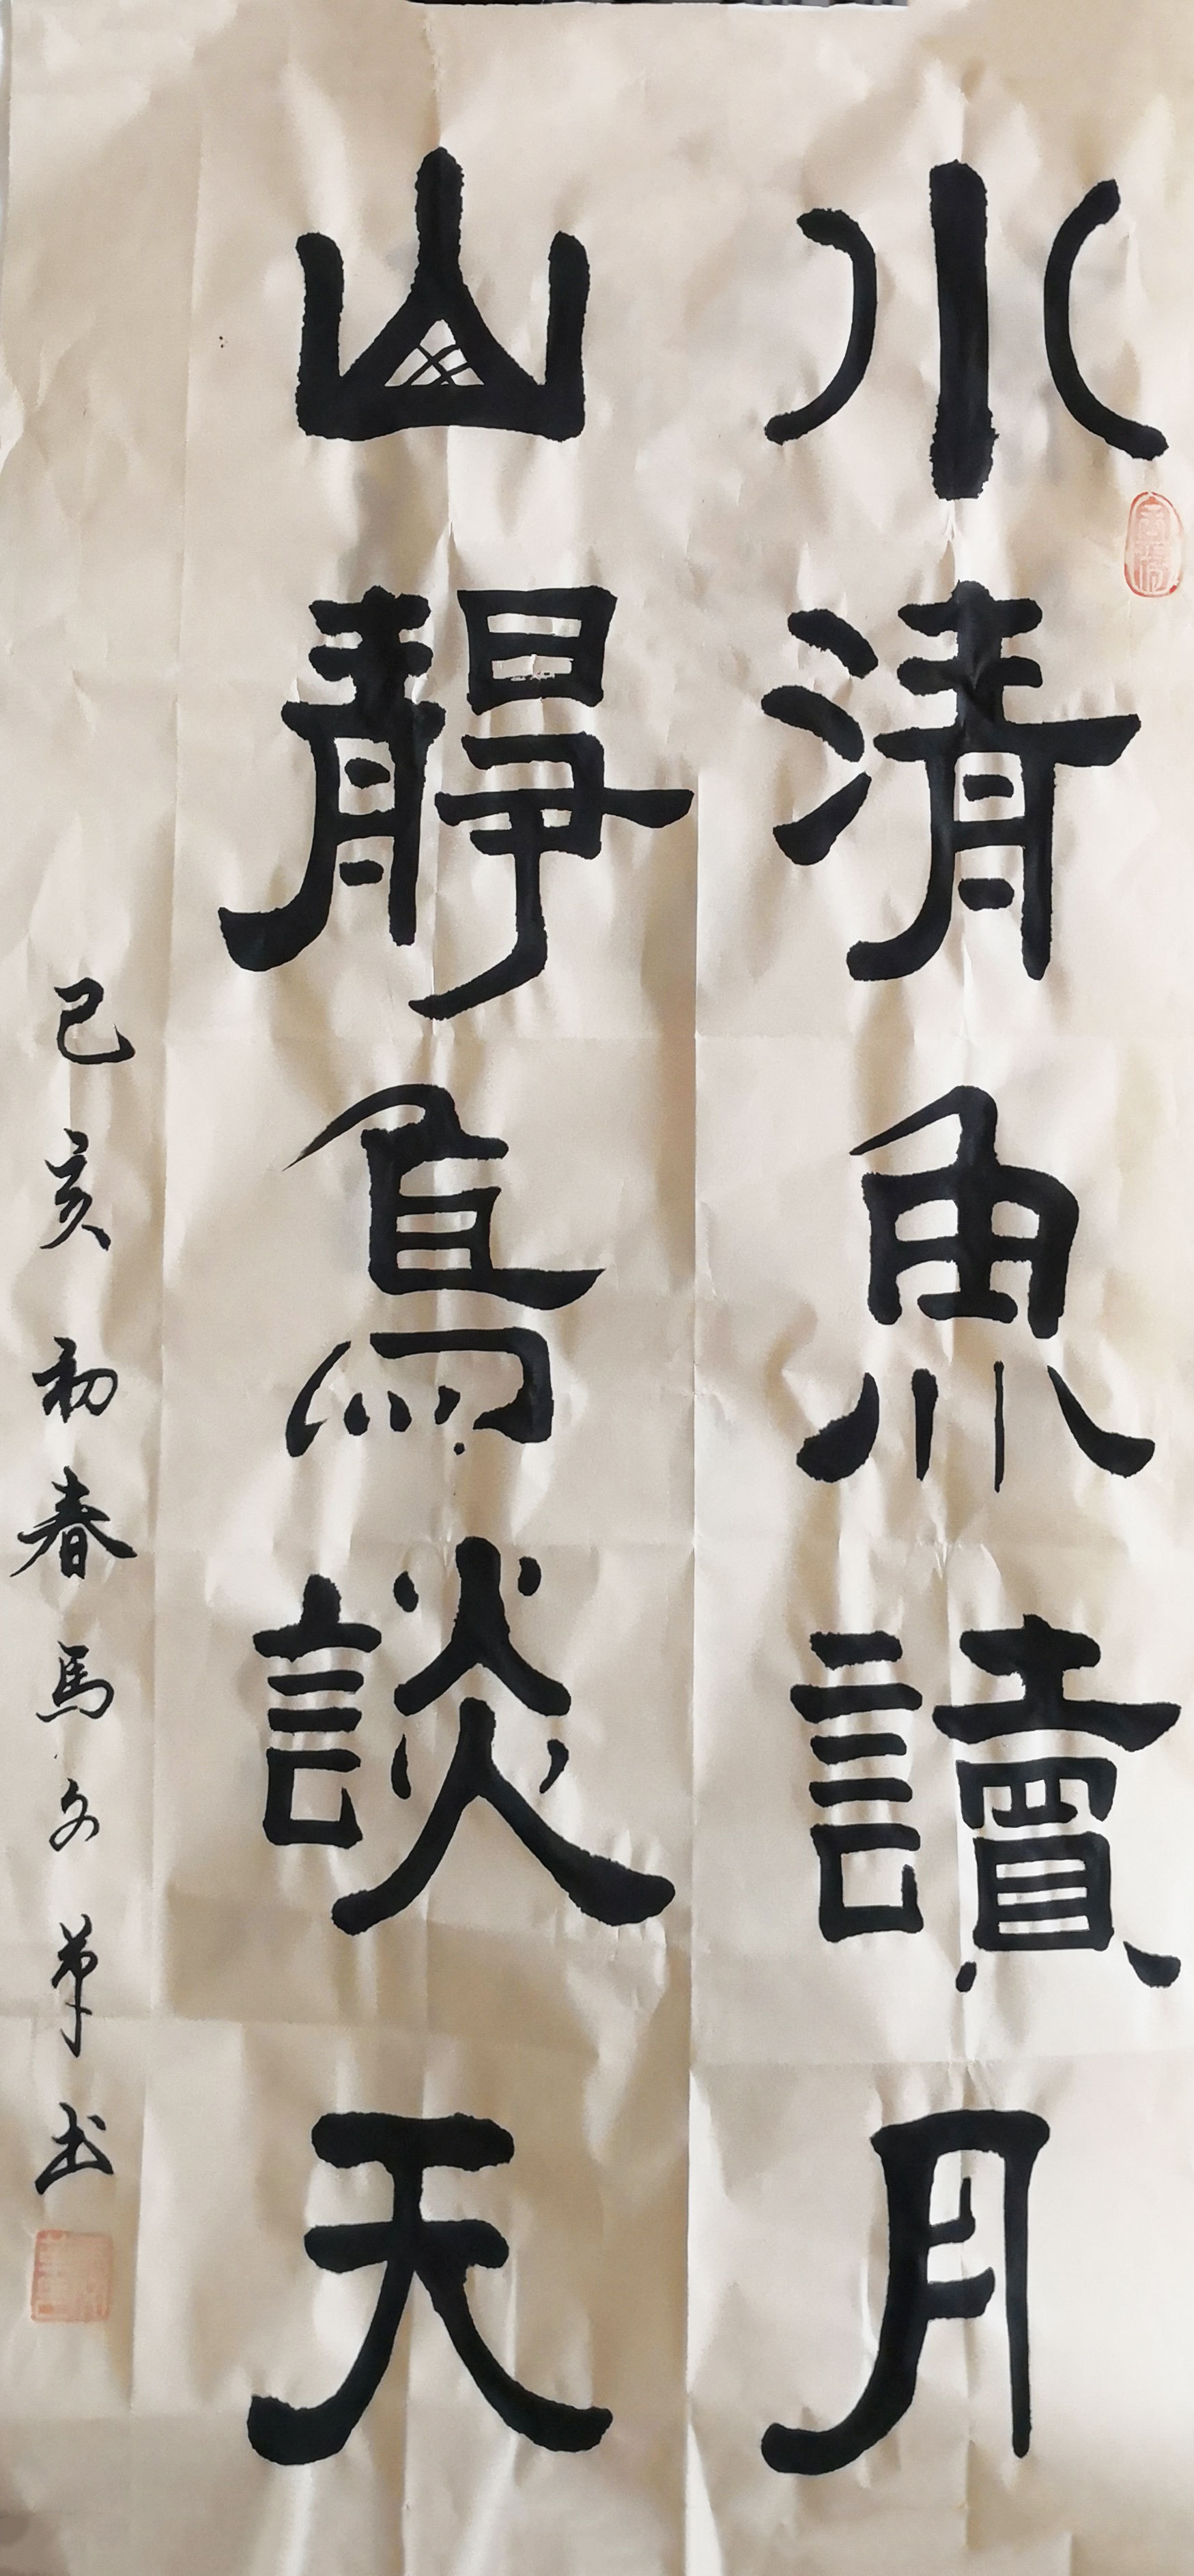 水清魚讀月
山靜鳥談天
己亥初春馬文華書